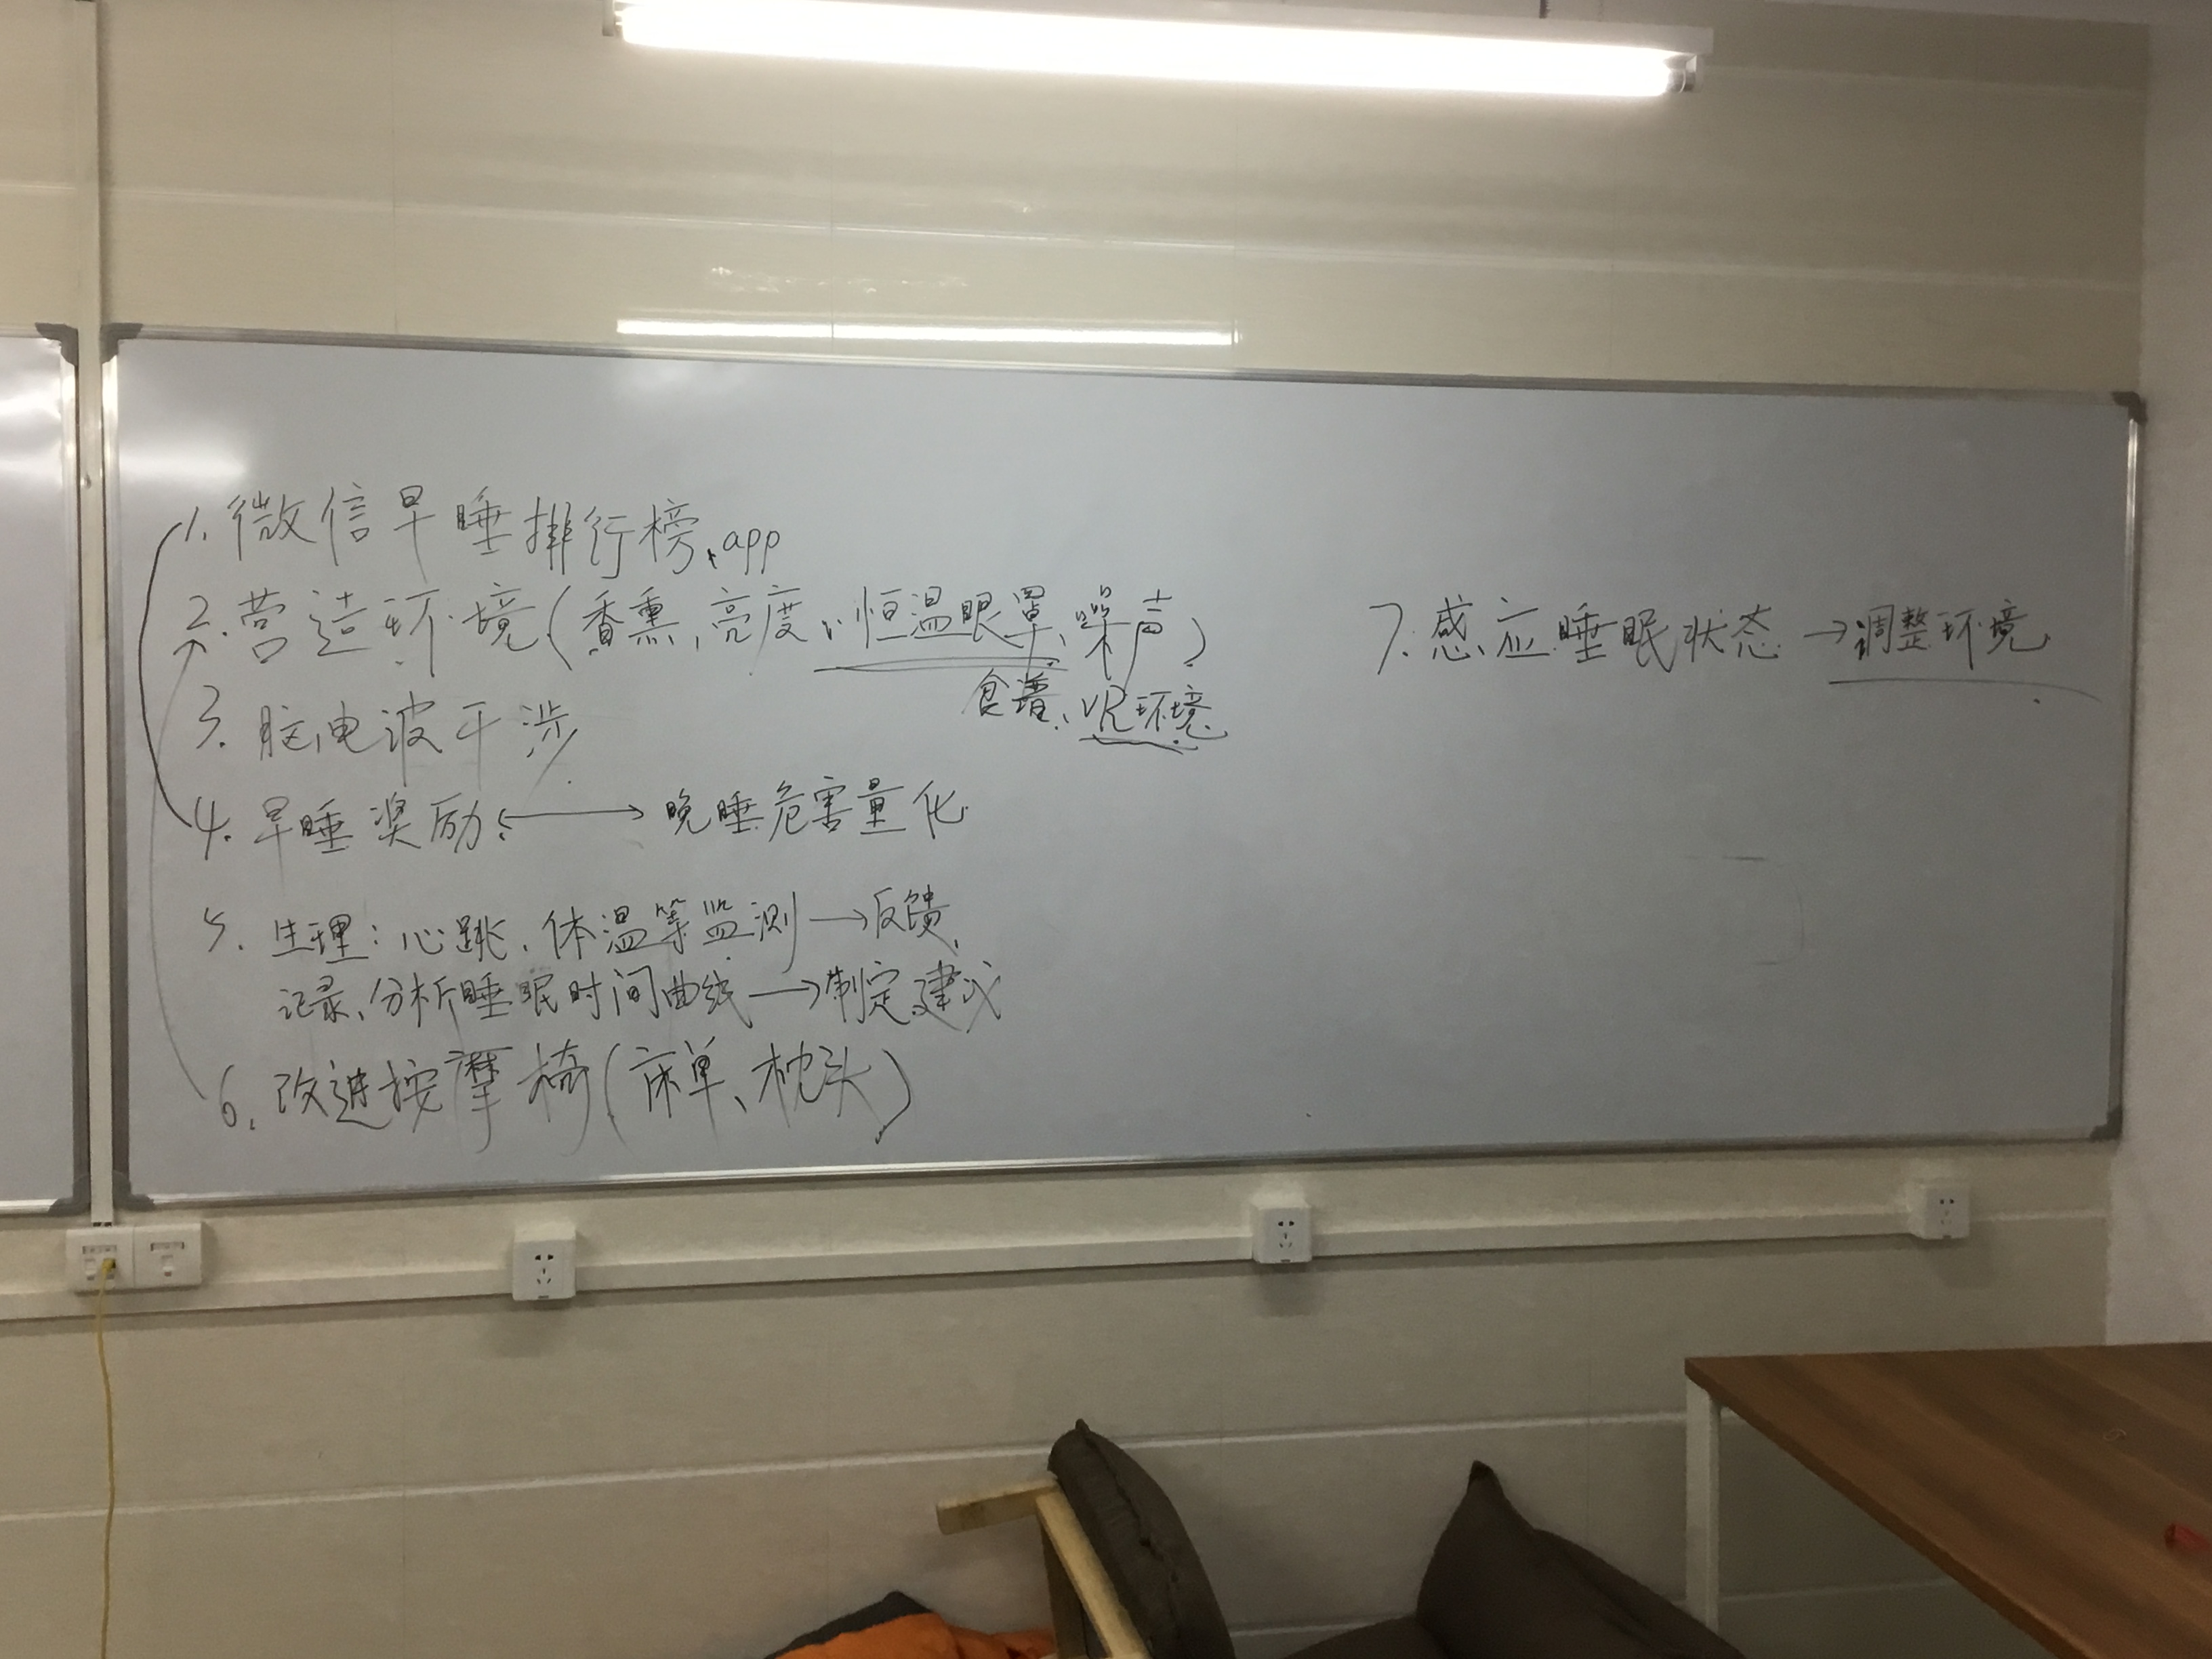 1. 微信早睡排行榜、app
2. 营造环境(香熏、亮度、恒温眼罩、噪声)
食谱、VR环境
3. 脑电波干涉
4. 早睡奖励 ←→ 晚睡危害量化
5. 生理:心跳、体温等监测→反馈
记录、分析睡眠时间曲线→制定建议
6. 改进按摩椅(床单、枕头)
7. 感应睡眠状态→调整环境